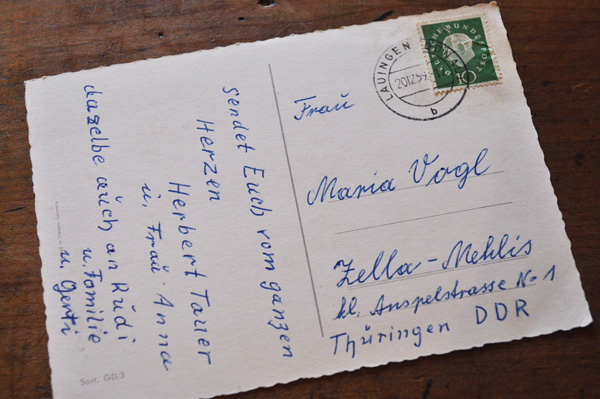 sendet Euch vom ganzen
Herzen
Herbert Tauer
u. Frau Anna
daselbe auch an Rudi
u. Familie
u. Gerti
Sort. GD:3
DEUTSCHE BUNDESPOST
10
LAUINGEN (DONAU)
20.12.59
b
Frau
Maria Vogl
Zella-Mehlis
kl. Anspelstrasse No 1
Thüringen DDR